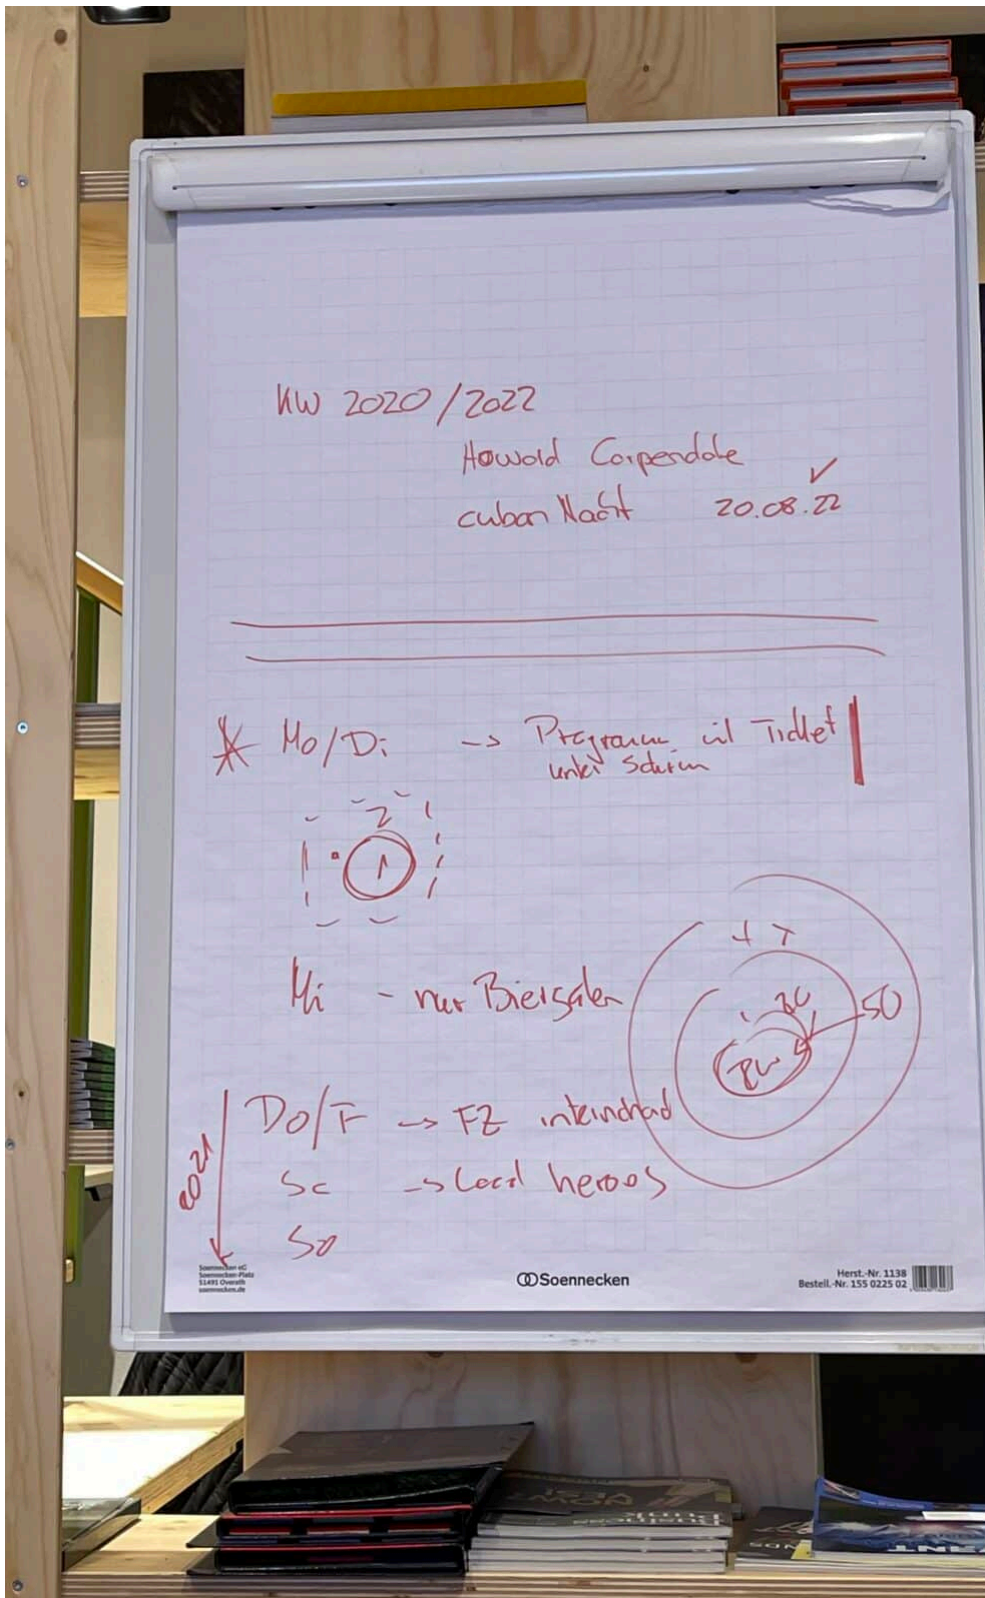 KW 2020/2022
Howold Carpendale
cuban Nacht 20.08.22
Mo/Di -> Programm mit Ticket
unter Schirm
2
1
Mi - nur Biergarten
50
Do/F -> FZ
Sa -> Local heroes
So
2021
Soennecken eG
Soennecken-Platz
51491 Overath
soennecken.de
Soennecken
Herst.-Nr. 1138
Bestell.-Nr. 155 0225 02